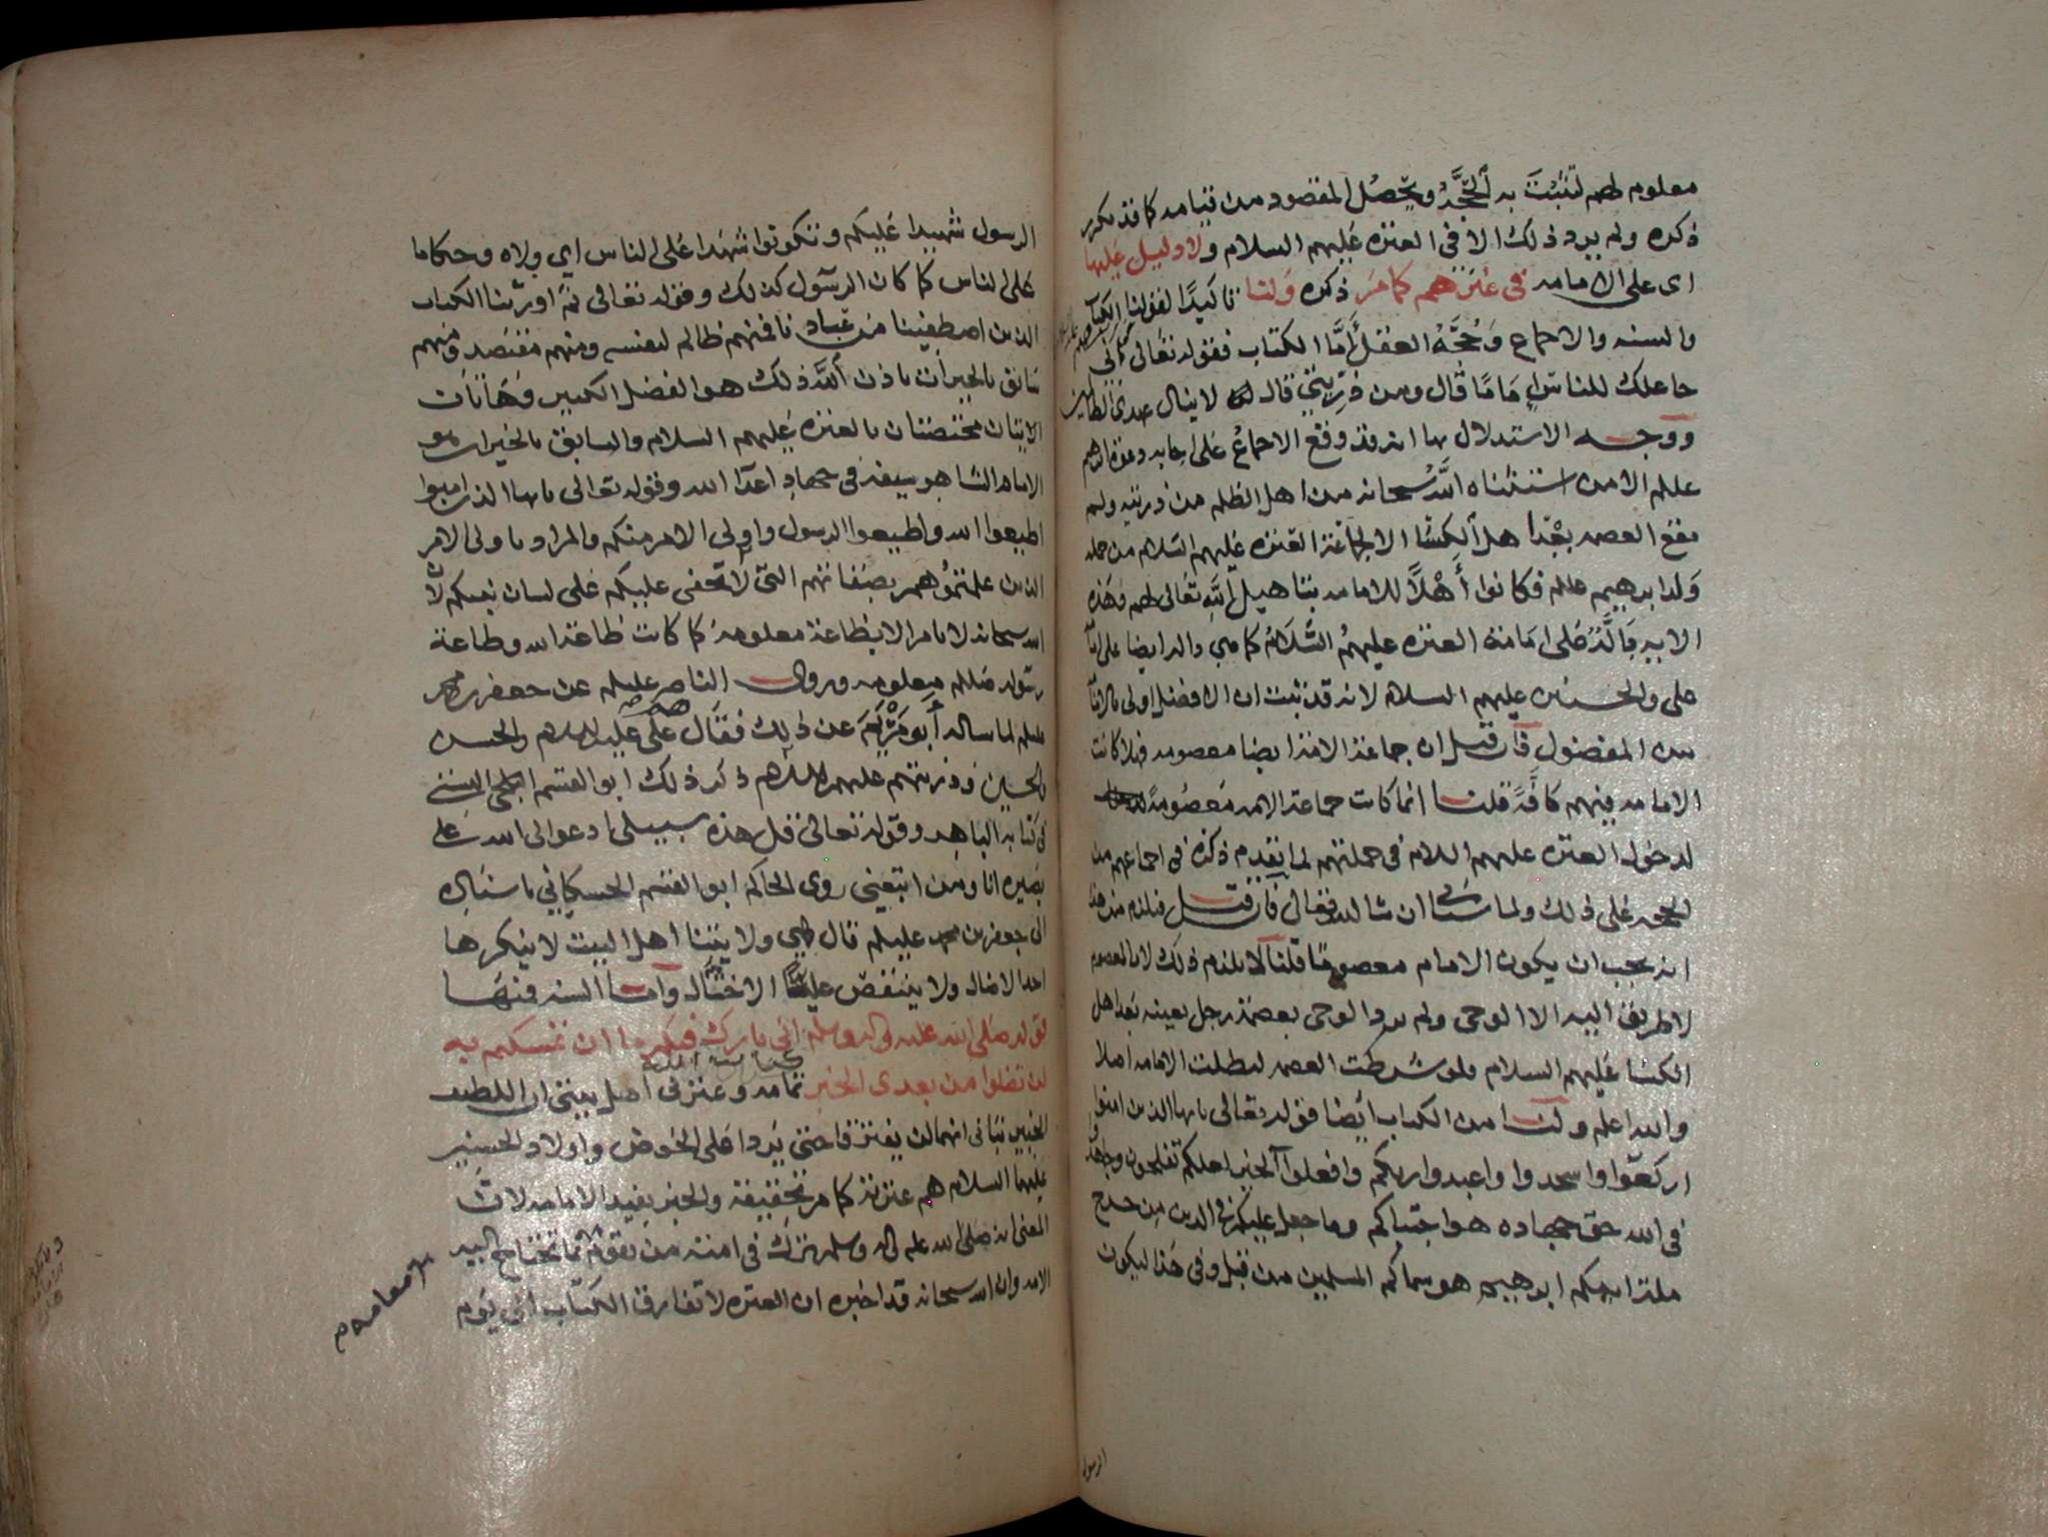 معلوم لهم لتثبت به الحجة ويحصل المقصود من قيامه كما قد تكرر
ذكره ولم يرد ذلك الا في العترة عليهم السلام ولا دليل عليها
اى على الامامة في غيرهم كما مر ذكره ولنا تاكيدا لقولنا الكتاب
والسنه والاجماع وحجة العقل أمّا الكتاب فقوله تعالى اني
جاعلك للناس إماما قال ومن ذريتي قال لا ينال عهدي الظالمين
ووجه الاستدلال بها انه قد وقع الاجماع على اجابه دعوة ابراهيم
عللم الا من استثناه الله سبحانه من اهل الظلم من ذريته ولم
تقع العصمه بعد اهل الكسا الا لجماعة العترة عليهم السلام من جمله
ولد ابرهيم عللم فكانوا أهلاً للامامه بتاهيل الله تعالى لهم فهذه
الايه دالة على امامة العترة عليهم السلام كما مر والد ايضا على امامة
على والحسنين عليهم السلام لانه قد ثبت ان الافضل اولى بالامامة
من المفضول فان قيل ان جماعة الامة ايضا معصومه فهلا كانت
الامامه فيهم كافة قلنا انما كانت جماعة الامه معصومة
لدخول العترة عليهم السلام في جملتهم لما تقدم ذكره في اجماعهم من
الحجه على ذلك ولما سياتى ان شا الله تعالى فان قيل فيلزم من هذا
انه يجب ان يكون الامام معصوما قلنا لا يلزم ذلك لان العصمه
لا طريق اليها الا الوحى ولم يرد الوحى بعصمة رجل بعينه بعد اهل
الكسا عليهم السلام فلو شرطت العصمه لبطلت الامامه اصلا
والله اعلم ولنا من الكتاب ايضا قوله تعالى يايها الذين امنوا
اركعوا واسجدوا واعبدوا ربكم وافعلوا الخير لعلكم تفلحون وجاهدوا
في الله حق جهاده هو اجتباكم وما جعل عليكم في الدين من حرج
ملة ابيكم ابرهيم هو سماكم المسلمين من قبل وفي هذا ليكون
الرسول
الرسول شهيدا عليكم وتكونوا شهدا على الناس اي ولاه وحكاما
على الناس كما كان الرسول كذلك وقوله تعالى ثم اورثنا الكتاب
الذين اصطفينا من عبادنا فمنهم ظالم لنفسه ومنهم مقتصد ومنهم
سابق بالخيرات باذن الله ذلك هو الفضل الكبير وهاتان
الايتان مختصتان بالعترة عليهم السلام والسابق بالخيرات هو
الامام الشاهر سيفه في جهاد اعدا الله وقوله تعالى يايها الذين امنوا
اطيعوا الله واطيعوا الرسول واولى الامر منكم والمراد باولى الامر
الذين علمتموهم بصفاتهم التي لا تخفى عليكم على لسان نبيكم لان
الله سبحانه لا يامر الا بطاعة معلومة كما كانت طاعة الله وطاعة
رسوله صللم معلومه وروى الناصر عليلم عن جعفر بن محمد
عليلم لما ساله أبو مريم عن ذلك فقال على عليه السلام والحسن
والحسين وذريتهم عليهم السلام ذكر ذلك ابو القسم البستي
في كتابه الباهر وقوله تعالى قل هذه سبيلي ادعو الى الله على
بصيره انا ومن اتبعني روى الحاكم ابو القسم الحسكاني باسناده
الى جعفر بن محمد عليلم قال هي ولايتنا اهل البيت لا ينكرها
احد الا ضال ولا ينتقص عليا الا ضال وأما السنه فمنها
قوله صلى الله عليه واله وسلم اني تارك فيكم ما ان تمسكتم به
لن تضلوا من بعدي الخبر تمامه وعترتى اهل بيتى ان اللطيف
الخبير نبانى انهما لن يفترقا حتى يردا على الحوض واولاد الحسنين
عليهما السلام هم عترته كما مر تحقيقه والخبر يفيد الامامه لان
المعنى انه صلى الله عليه واله وسلم ترك في امته من يقوم بما تحتاج اليه
الامه وان الله سبحانه قد اخبره ان العترة لا تفارق الكتاب الى يوم